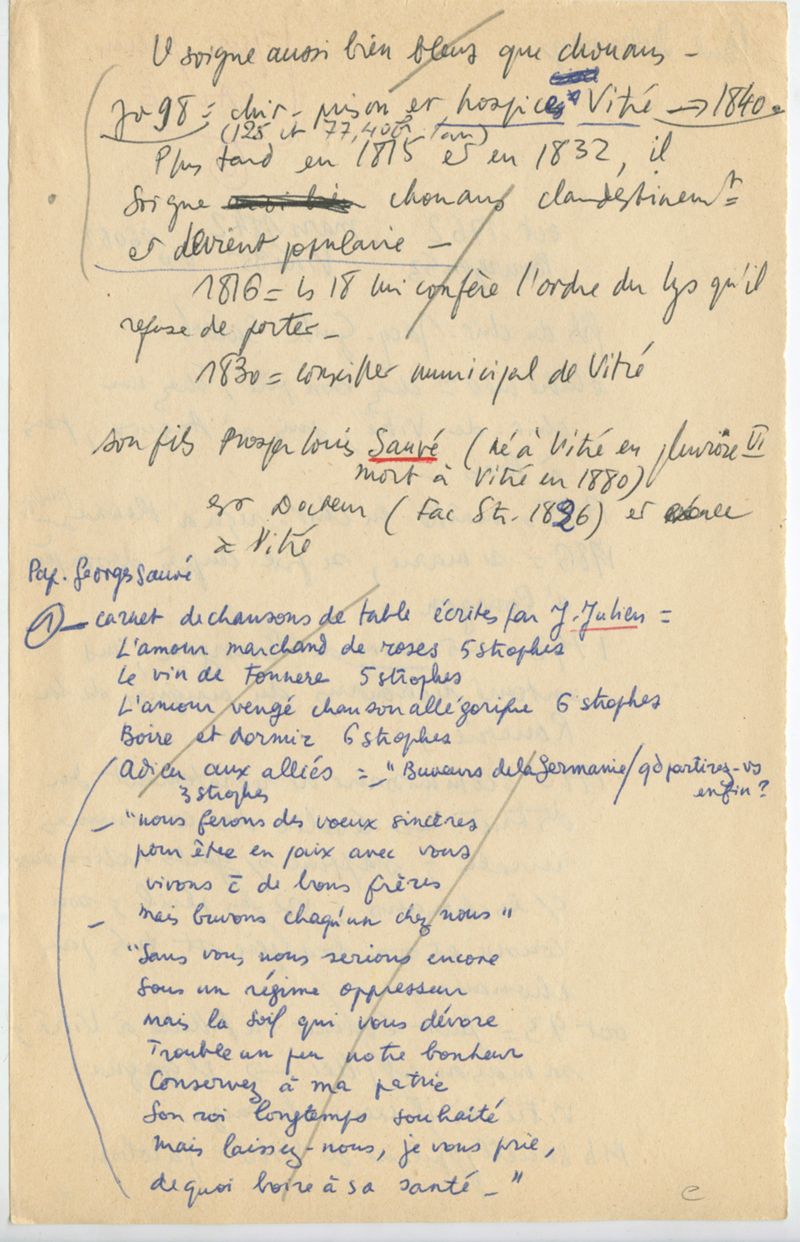 Il soigne aussi bien bleus que chouans –
98 = chir – prison et hospices Vitré → 1840.
(125 et 77,40 /an)
Plus tard en 1815 et en 1832, il
soigne chouans clandestinemt =
et devient populaire –
1816 = Ls 18 lui confère l'ordre du lys qu'il
refuse de porter –
1830 = conseiller municipal de Vitré
son fils Prosper Louis Sauvé (né à Vitré en pluviôse VI
mort à Vitré en 1880)
est Docteur (Fac Str. 1826) et exerce
à Vitré
Pap. Georges Sauvé
① – carnet de chansons de table écrites par J. Julien =
L'amour marchand de roses 5 strophes
Le vin de Tonnere 5 strophes
L'amour vengé chanson allégorique 6 strophes
Boire et dormir 6 strophes
Adieu aux alliés = – "Buveurs de la Germanie / qd partirez-vs
enfin ?
3 strophes
– "nous ferons des voeux sincères
pour être en paix avec vous
vivons c̄ de bons frères
– Mais buvons chaqu'un chez nous"
"Sans vous nous serions encore
sous un régime oppresseur
mais la soif qui vous dévore
Trouble un peu notre bonheur
Conservez à ma patrie
Son roi longtemps souhaité
Mais laissez-nous, je vous prie,
de quoi boire à sa santé – "
e